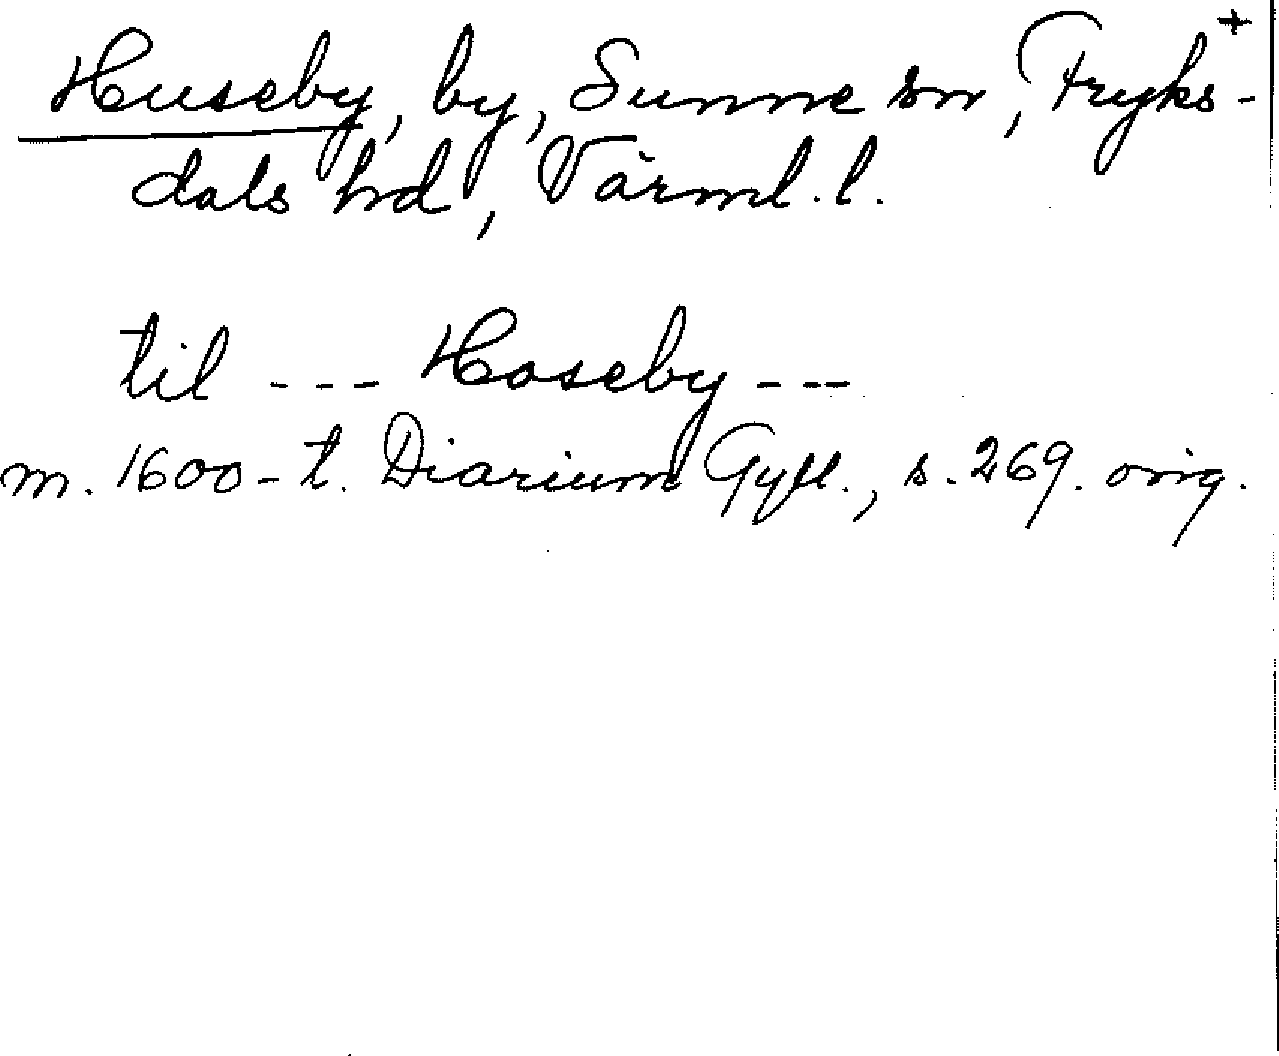 Huseby, by, Sunne sn, Fryks-+
dals hd, Värml. l.
til --- Hoseby ---
m. 1600-t. Diarium Gyll., s. 269. orig.